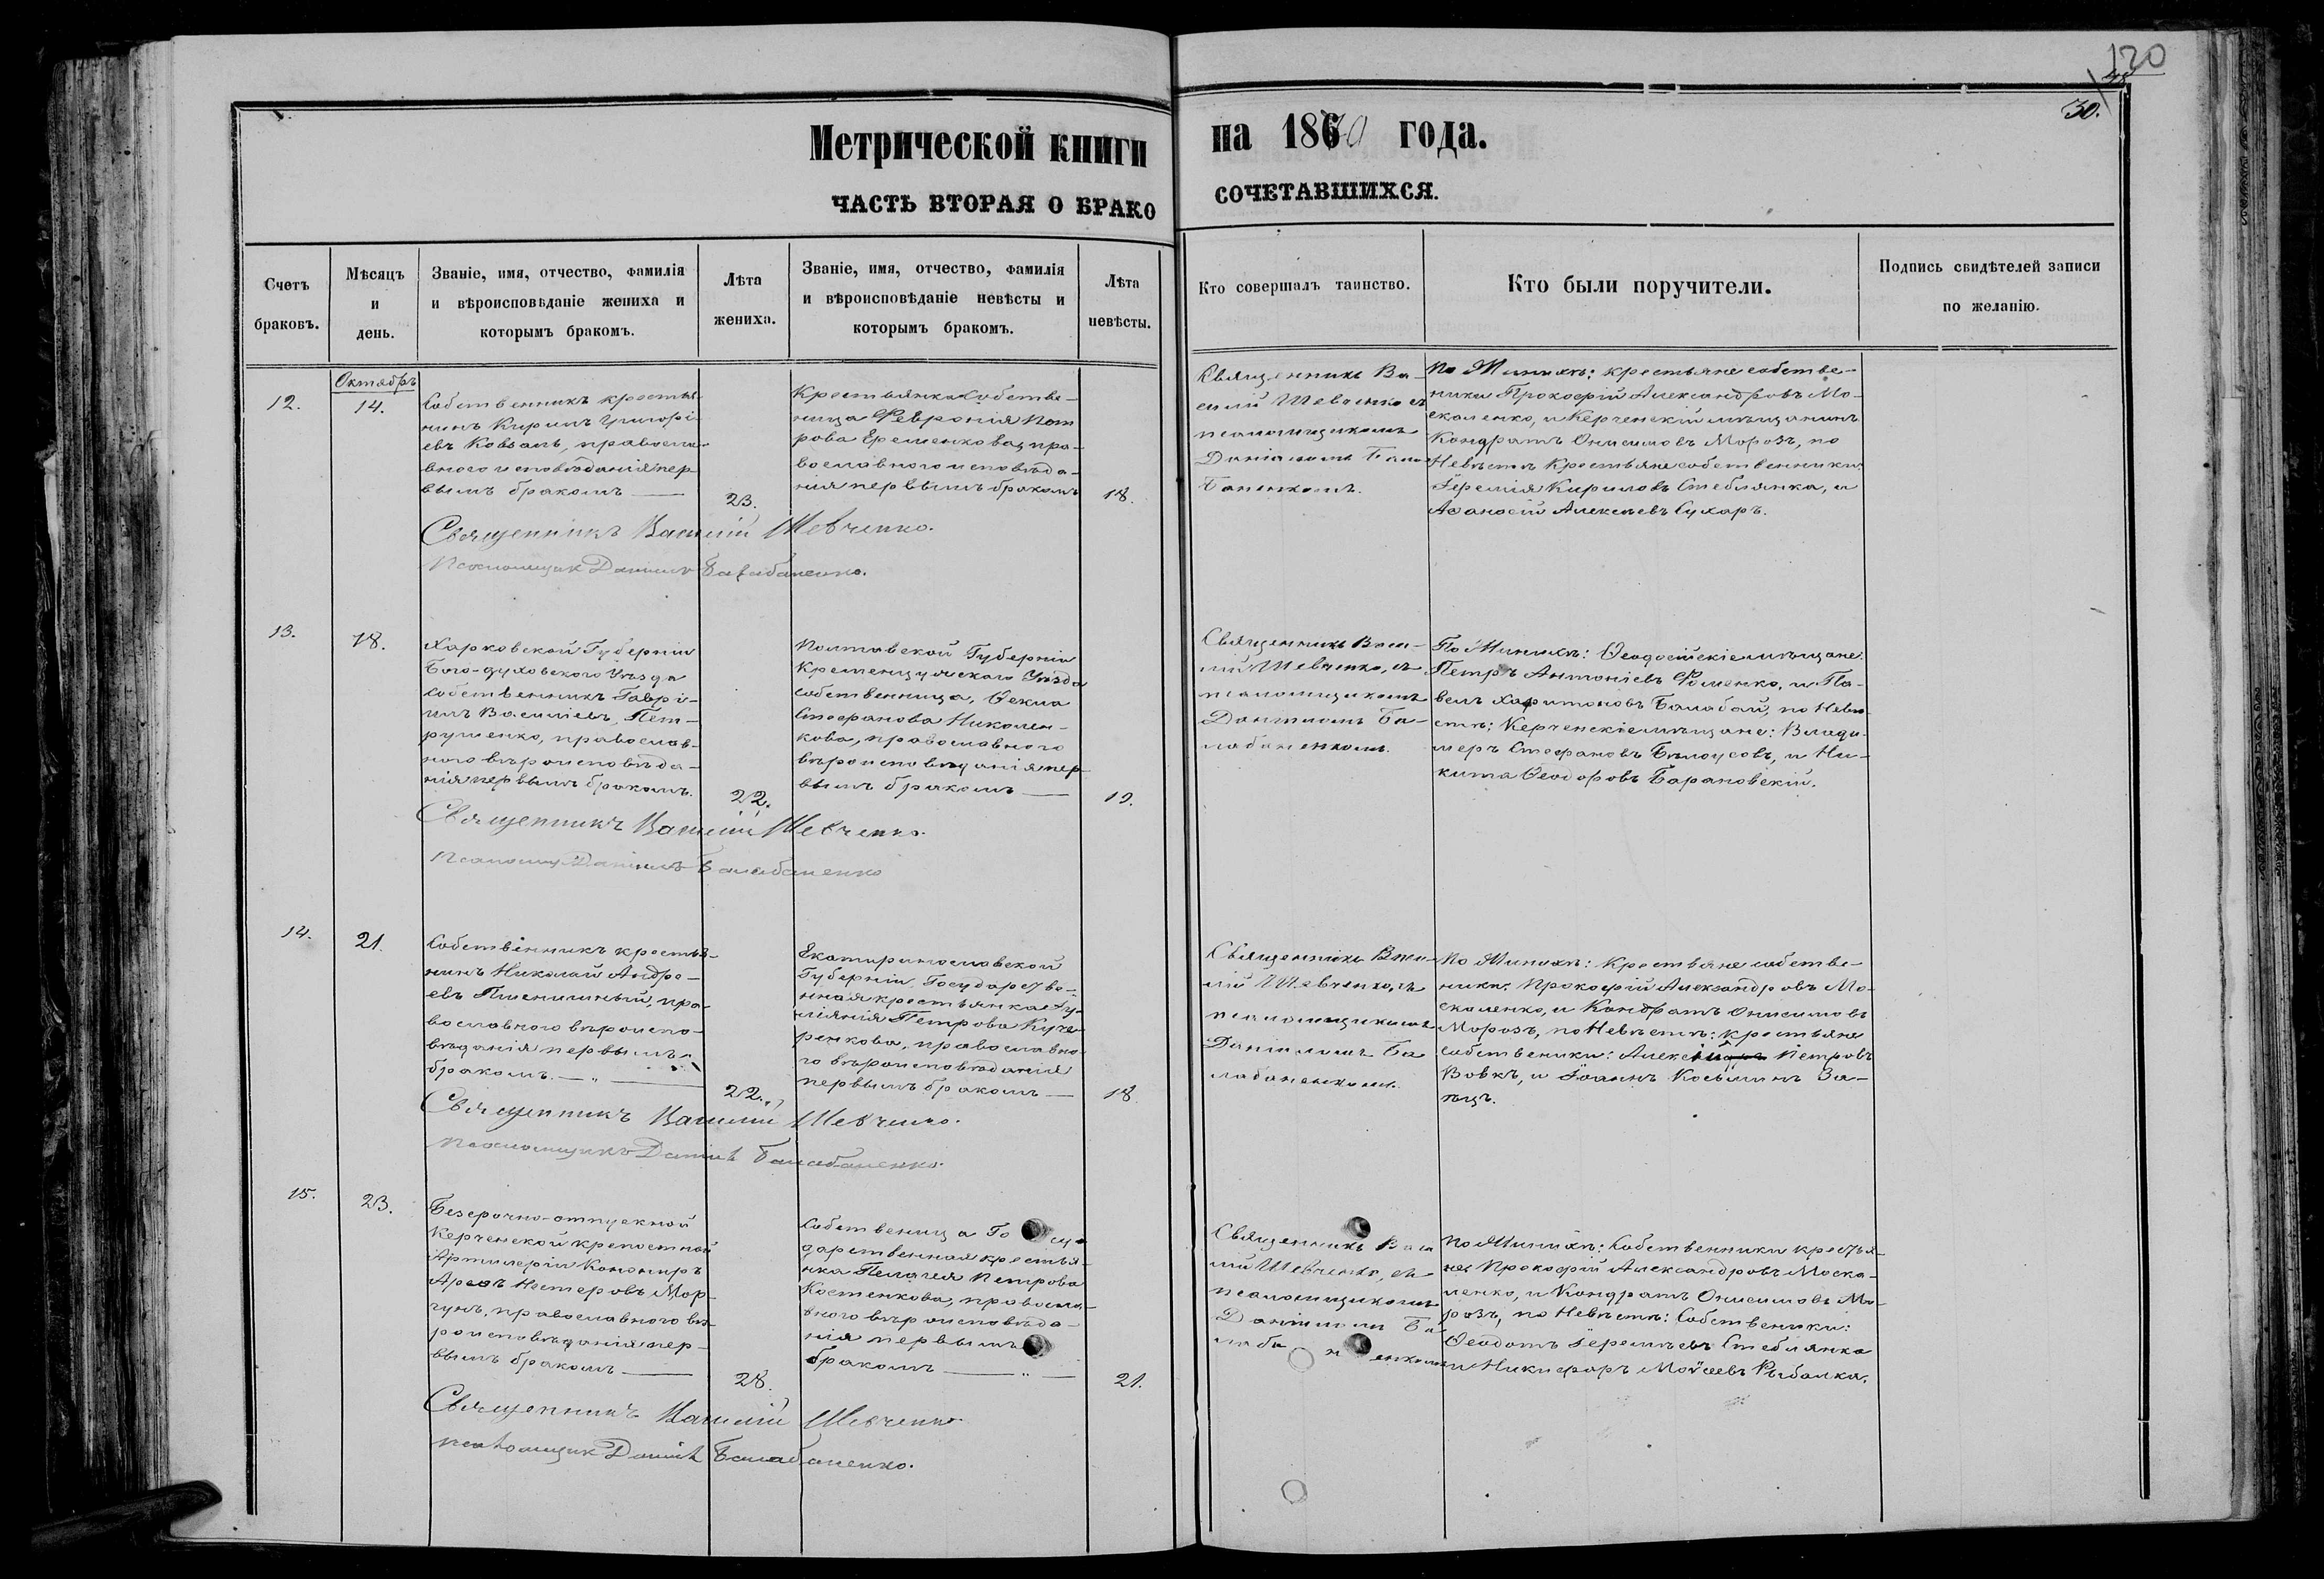 120
30.
Метрической книги
на 1870 года.
ЧАСТЬ ВТОРАЯ О БРАКО
СОЧЕТАВШИХСЯ.
Счетъ
браковъ.
Мѣсяцъ
и
день.
Званіе, имя, отчество, фамилія
и вѣроисповѣданіе жениха и
которымъ бракомъ.
Лѣта
жениха.
Званіе, имя, отчество, фамилія
и вѣроисповѣданіе невѣсты и
которымъ бракомъ.
Лѣта
невѣсты.
Кто совершалъ таинство.
Кто были поручители.
Подпись свидѣтелей записи
по желанію.
12.
Октябрь
14.
Собственникъ крестья-
нинъ Кирилъ Григорі-
евъ Ковбаль, правосла-
внаго исповѣданія пер
вымъ бракомъ
23.
Крестьянка собстве-
ница Февронія Пет
рова Еременкова, пра-
вославного исповѣда-
нія первымъ бракомъ
18.
Священникъ Ва-
силій Шевченко съ
псаломщикомъ
Даніиломъ Бала-
баненкомъ.
По Женихѣ: крестьяне собстве-
ники Прокофій Александровъ Мо-
скаленко, и Керченскій мѣщанинъ
Кондратъ Онисимовъ Морозъ, по
Невѣстѣ Крестьяне собственники:
Іеремія Кириловъ Стеблянка, и
Аѳанасій Алексѣевъ Сухаръ.
Священникъ Василій Шевченко.
Псаломщик Даниил Балабаненко.
13.
18.
Харковской Губерніи
Бого-духовского Уѣзда
собственникъ Гаврі-
илъ Василіевъ Пет-
рушенко, православ-
ного вѣроисповѣда-
нія первымъ бракомъ.
22.
Полтавской Губерніи
Кременчугского Уѣзда
собственница, Ѳекла
Стефанова Николен-
кова, православного
вѣроисповѣданія пер-
вымъ бракомъ
19.
Священникъ Васи-
лій Шевченко, съ
псаломщикомъ
Даніиломъ Ба-
лабаненкомъ.
По Женихѣ: Ѳеодосійскіе мѣщане:
Петръ Антоніевъ Фоменко, и Па-
велъ Харитоновъ Балабай, по Невѣ-
стѣ; Керченскіе мѣщане: Влади-
меръ Стефановъ Бѣлоусовъ, и Ни-
кита Ѳеодоровъ Барановскій.
Священникъ Василій Шевченко.
Псаломщ Даніилъ Балабаненко
14.
21.
Собственникъ крестья-
нинъ Николай Андре-
евъ Пшенишный, пра-
вославного вѣроиспо-
вѣданія первымъ
бракомъ.
22.
Екатиринославской
Губерніи, Государстве-
нная крестьянка Іу-
ліянія Петрова Куче-
ренкова, православно-
го вѣроисповѣданія
первымъ бракомъ
18.
Священникъ Васи-
лій Шевченко, съ
псаломщикомъ
Даніиломъ Ба
лабаненкомъ.
По Женихѣ: Крестьяне собстве-
ники: Прокофій Александровъ Мо-
скаленко, и Кондратъ Онисимовъ
Морозъ, по Невѣстѣ: крестьяне
собственики: Алексій Петровъ
Вовкъ, и Іоаннъ Косьминъ За-
яцъ.
Священникъ Василій Шевченко.
Псаломщикъ Даниіл Балабаненко.
15.
23.
Безсрочно-отпускной
Керченской крепостной
Артилеріи Канониръ
Нестеровъ Мор-
гунъ, православного вѣ-
роисповѣданія пер-
вымъ бракомъ
28.
Собственица Госу-
дарственная крестья-
нка Пелагея Петрова
Костенкова, правосла-
вного вѣроисповѣда-
нія первымъ
бракомъ
21.
Священникъ Васи
лій Шевченко, съ
псаломщикомъ
Даніиломъ Ба
лабаненкомъ
По Женихѣ: Собственники крестья-
не Прокофій Александровъ Моска-
ленко, и Кондратъ Онисимовъ Мо-
розъ, по Невѣстѣ: Собственики:
Ѳеодотъ Іереміевъ Стеблянко
и Никифоръ Моѵсеевъ Рыбалка.
Священникъ Василій Шевченко.
псаломщик Даниіл Балабаненко.